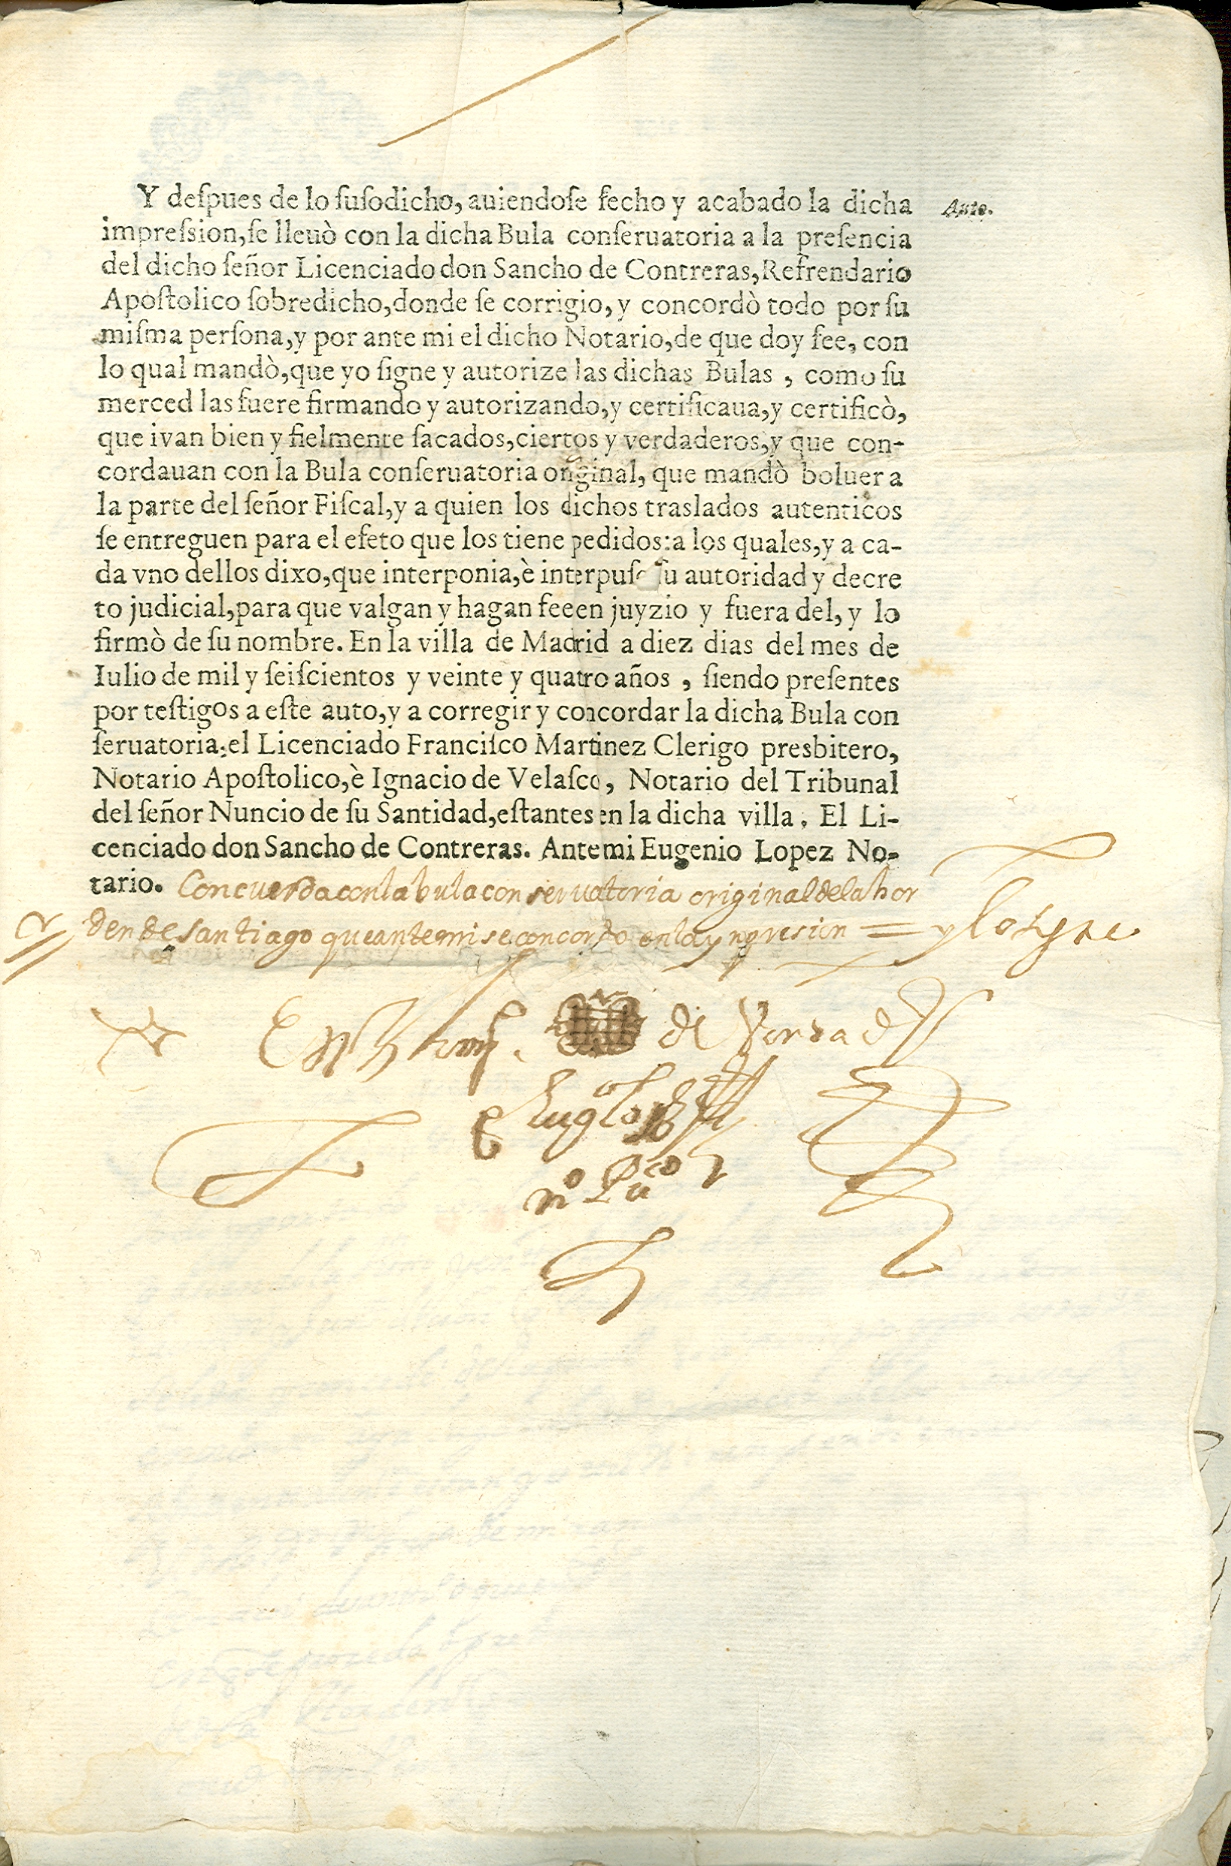 Y deſpues de lo ſuſodicho, auiendoſe fecho y acabado la dicha
Auto.
impreſsion, ſe lleuò con la dicha Bula conſeruatoria a la preſencia
del dicho ſeñor Licenciado don Sancho de Contreras, Refrendario
Apoſtolico ſobredicho, donde ſe corrigio, y concordò todo por ſu
miſma perſona, y por ante mi el dicho Notario, de que doy fee, con
lo qual mandò, que yo ſigne y autorize las dichas Bulas , como ſu
merced las fuere firmando y autorizando, y certificaua, y certificò,
que ivan bien y fielmente ſacados, ciertos y verdaderos, y que con-
cordauan con la Bula conſeruatoria original, que mandò boluer a
la parte del ſeñor Fiſcal, y a quien los dichos traslados autenticos
ſe entreguen para el efeto que los tiene pedidos: a los quales, y a ca-
da vno dellos dixo, que interponia, è interpuſo ſu autoridad y decre
to judicial, para que valgan y hagan fee en juyzio y fuera del, y lo
firmò de ſu nombre. En la villa de Madrid a diez dias del mes de
Iulio de mil y ſeiſcientos y veinte y quatro años , ſiendo preſentes
por teſtigos a eſte auto, y a corregir y concordar la dicha Bula con
ſeruatoria: el Licenciado Franciſco Martinez Clerigo presbitero,
Notario Apoſtolico, è Ignacio de Velaſco, Notario del Tribunal
del ſeñor Nuncio de ſu Santidad, eſtantes en la dicha villa. El Li-
cenciado don Sancho de Contreras. Ante mi Eugenio Lopez No-
tario. Concuerda con la bula conservatoria original de la hor
den de santiago que ante mi se concordo en la ynpresion = y lo sygne
En de Verdad
Eugº Lopez
nº Pu^co